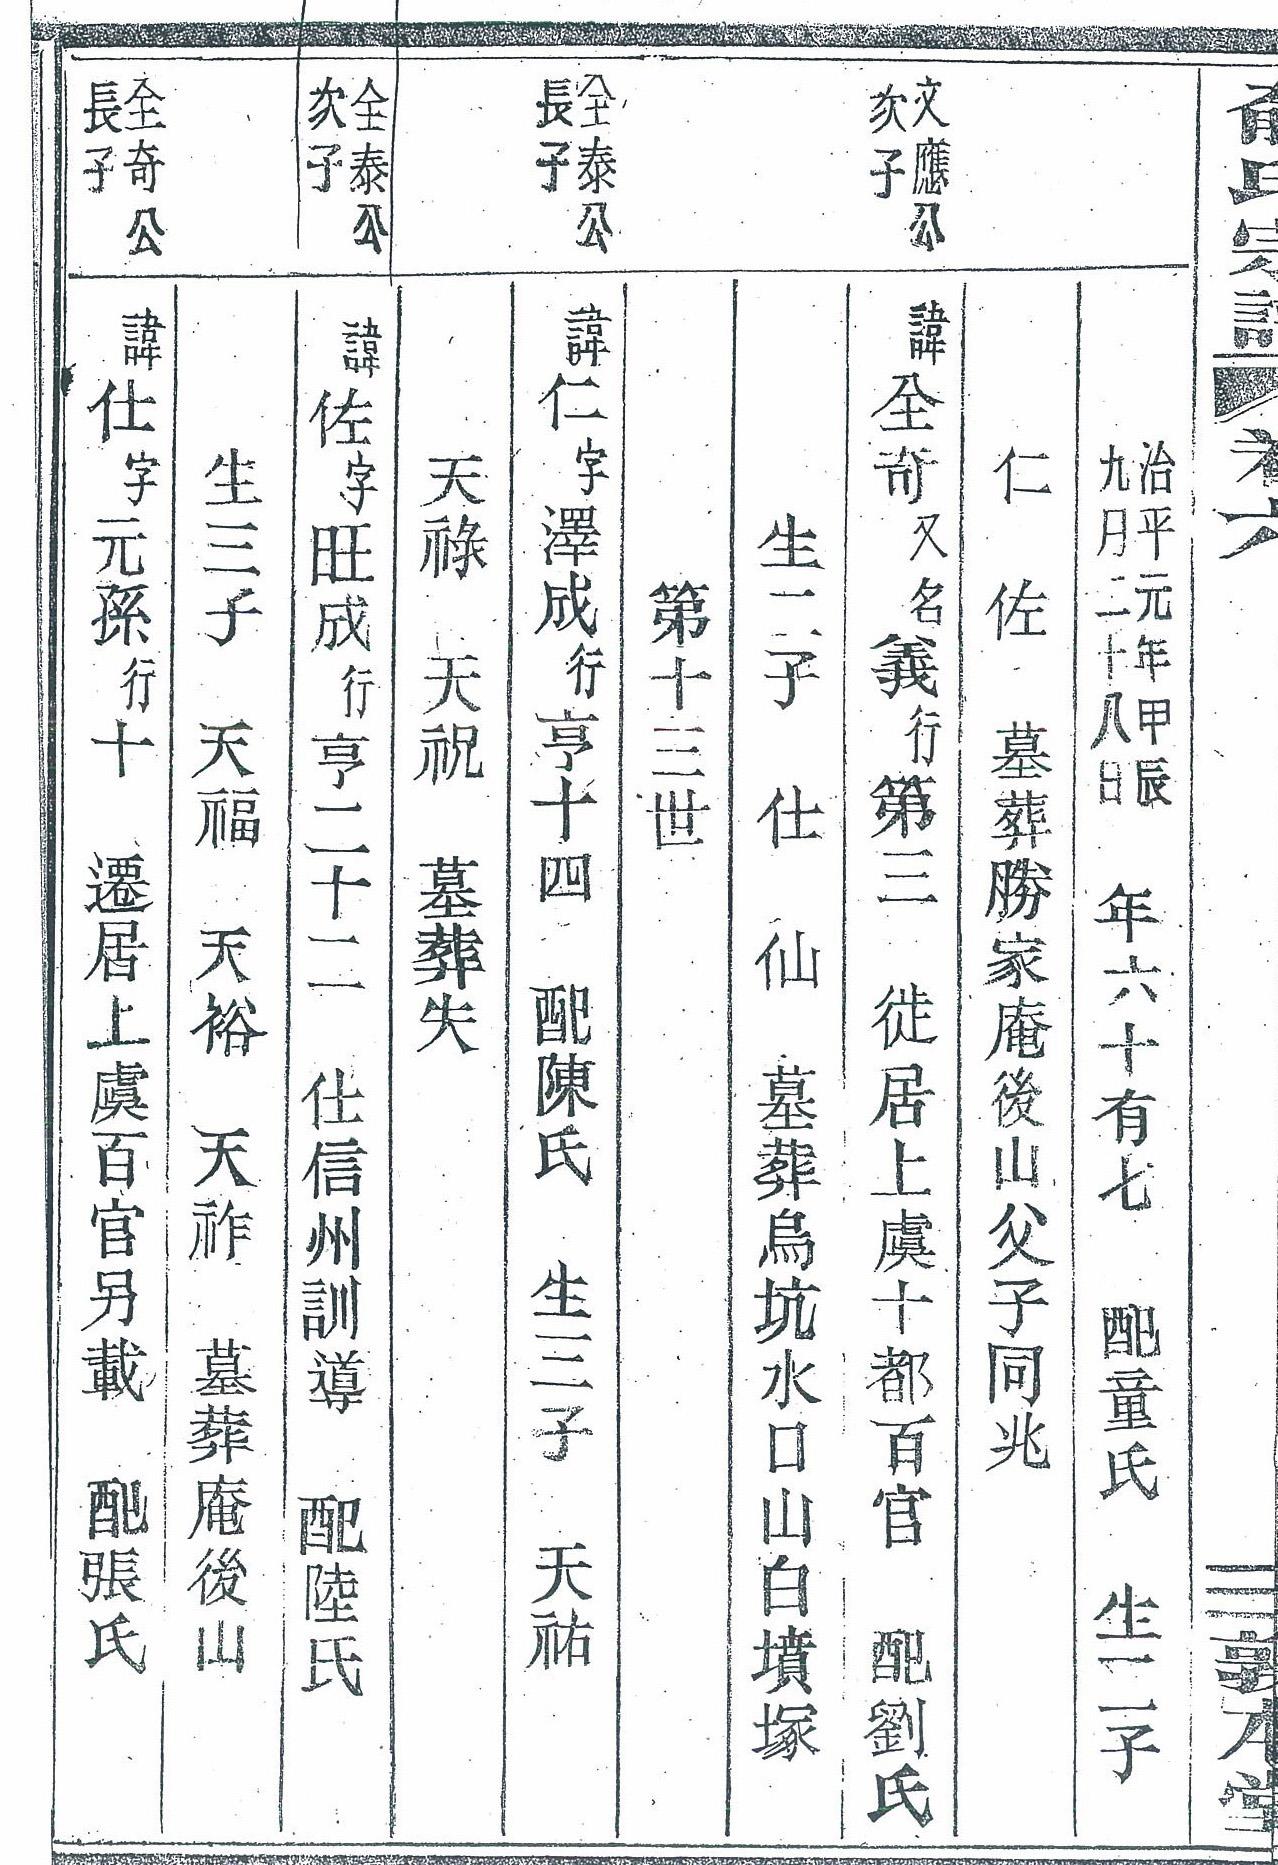 俞氏宗譜 卷六 三 敦本堂
治平元年甲辰
九月二十八日 年六十有七 配童氏 生二子
仁 佐 墓葬勝家庵後山父子同兆
文應公
次子
諱全奇又名義行第三 徙居上虞十都百官 配劉氏
生二子 仕 仙 墓葬烏坑水口山白墳塚
第十三世
全泰公
長子
諱仁字澤成行亨十四 配陳氏 生三子 天祐
天祿 天祝 墓葬失
全泰公
次子
諱佐字旺成行亨二十二 仕信州訓導 配陸氏
生三子 天福 天裕 天祚 墓葬庵後山
全奇公
長子
諱仕字元孫行十 遷居上虞百官另載 配張氏